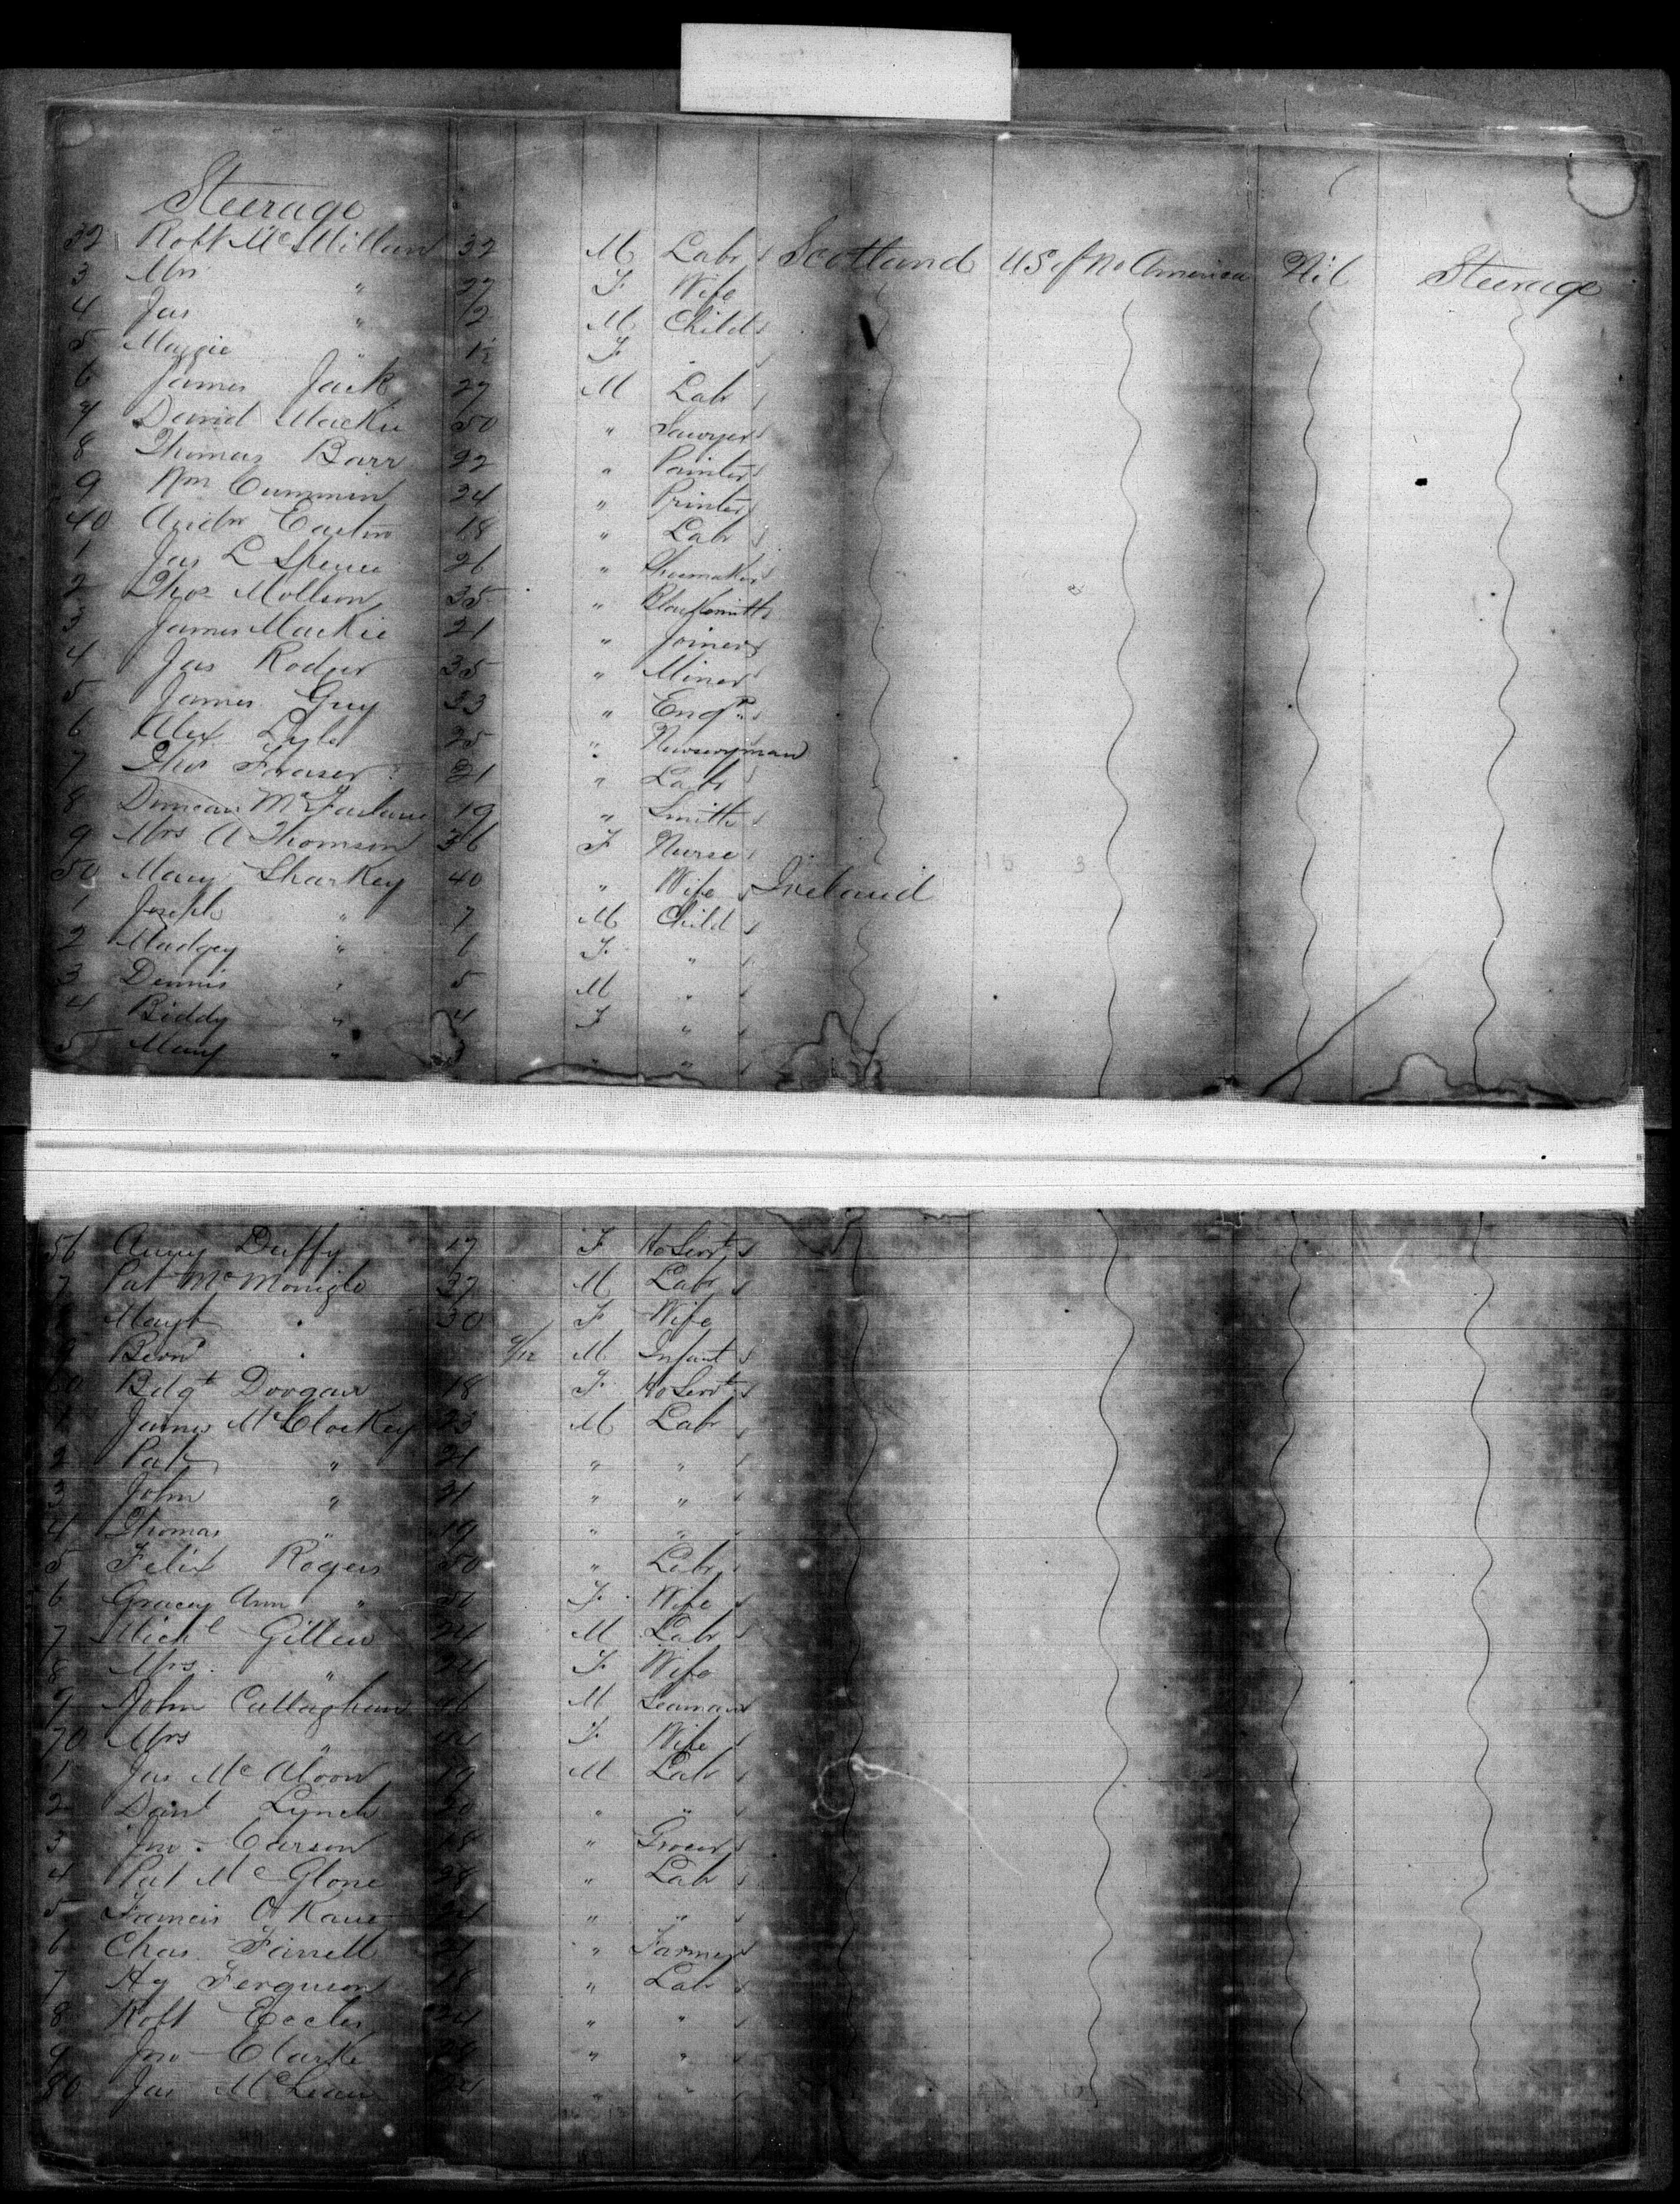 Steerage
32 Robt McMillan 32 M Labr Scotland US of No America Nil Steerage
3 Mrs " 27 F Wife
4 Jas " 2 M Child
5 Maggie " F
6 James Jack 27 M Labr
7 David Mackie 50 " Sawyer
8 Thomas Barr 22 " Painter
9 Wm Cummin 24 " Printer
40 Andw Easton 18 " Labr
1 Jas L Spence 26 " Shoemaker
2 Thos Mollson 35 " Blacksmith
3 James Mackie 21 " Joiner
4 Jas Rodger 35 " Miner
5 James Guy 23 " Engr
6 Alex Lyle 25 " Nurseryman
7 Thos Fraser 21 " Labr
8 Duncan McFarlane 19 " Smith
9 Mrs A Thomson 36 F Nurse
50 Mary Sharkey 40 " Wife Ireland
1 Joseph " 7 M Child
2 Madgey " 6 F "
3 Dennis " 5 M "
4 Biddy " 4 F "
5 Mary " 3 " "
56 Anny Duffy 17 F Ho Servt
7 Pat McMonigle 37 M Labr
8 Margt " 30 F Wife
9 Bernd " 9/12 M Infant
60 Bdgt Dorgan 18 F Ho Servt
1 James McCloskey 23 M Labr
2 Pat " 21 " "
3 John " 31 " "
4 Thomas " 19 " "
5 Felix Rogers 50 " Labr
6 Gracey Ann " 50 F Wife
7 Michl Gillen 24 M Labr
8 Mrs " 24 F Wife
9 John Callaghan 46 M Seaman
70 Mrs " F Wife
1 Jas McAloon 19 M Labr
2 Danl Lynch 20 " "
3 Jno Carson 18 " Grocer
4 Pat McGlone 28 " Labr
5 Francis O Kane 24 " "
6 Chas Farrell 21 " Farmer
7 Hy Ferguson 18 " Labr
8 Robt Eccles 24 " "
9 Jno Clarke 28 " "
80 Jas McLean 24 " "